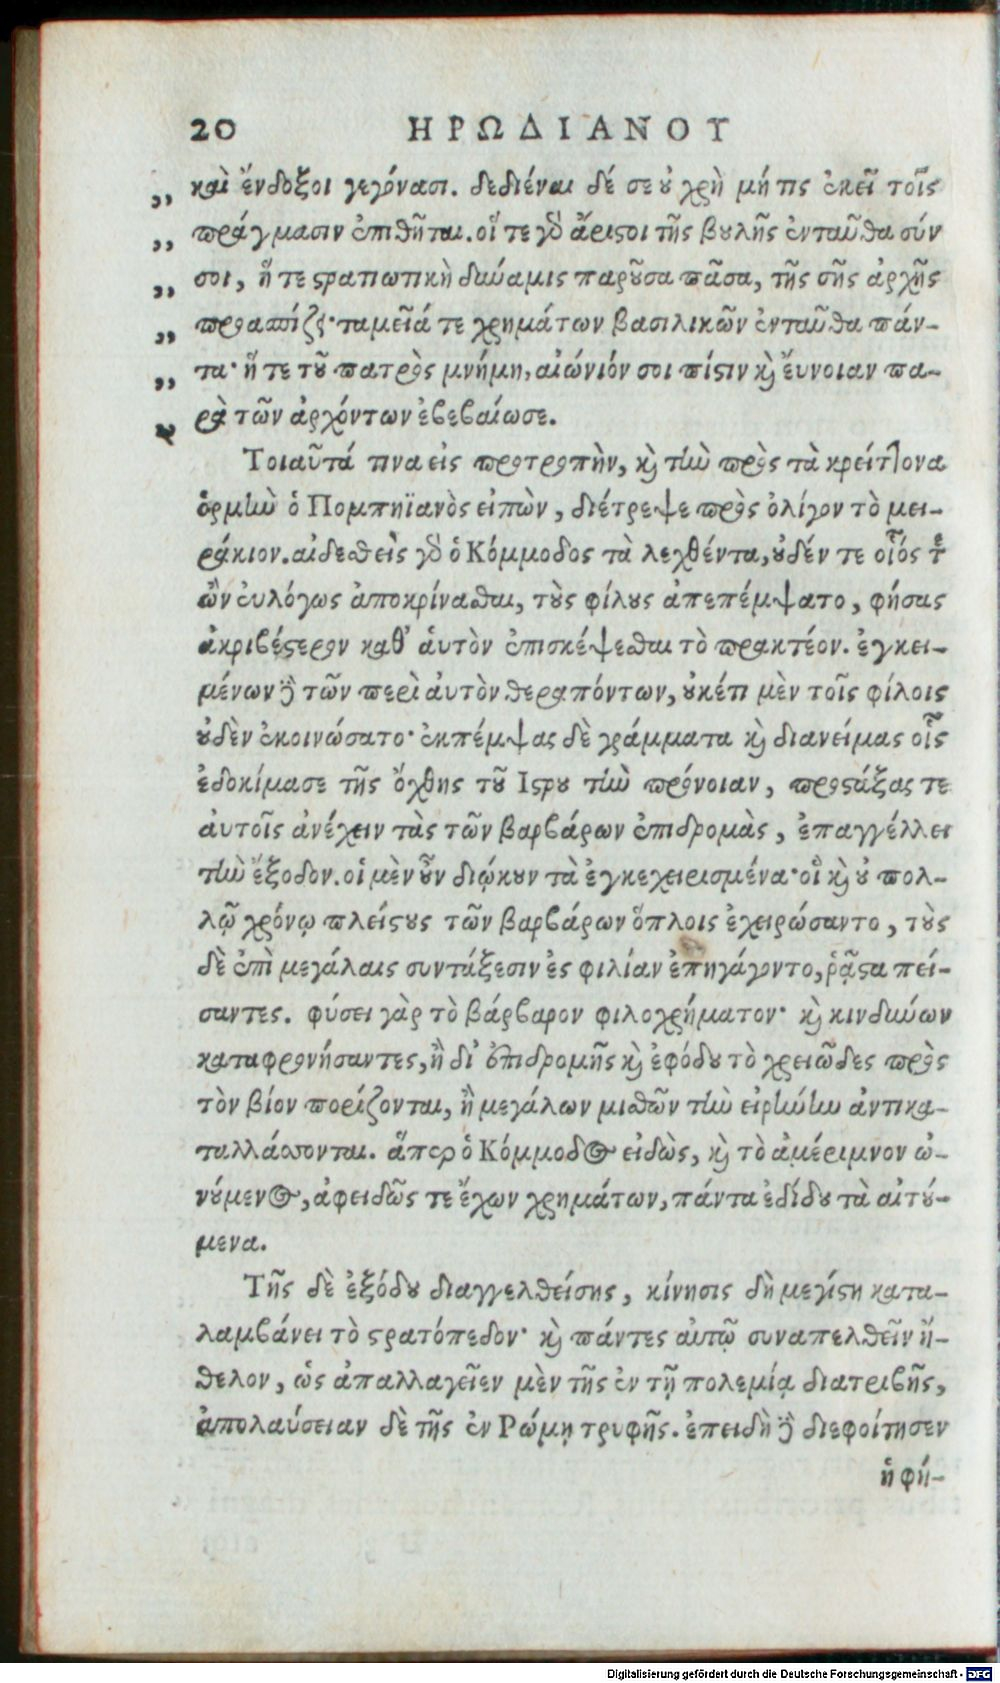 20 ΗΡΩΔΙΑΝΟΥ
,, καὶ ἔνδοξοι γεγόνασι. δεδιέναι δέ σε οὐ χρὴ μή τις ἐκεῖ τοῖς
,, πράγμασιν ἐπιθῆται. οἵ τε γὰρ ἄριστοι τῆς βουλῆς ἐνταῦθα σύν
,, σοι, ἥ τε στρατιωτικὴ δύναμις παροῦσα πᾶσα, τῆς σῆς ἀρχῆς
,, προασπίζει· ταμεῖά τε χρημάτων βασιλικῶν ἐνταῦθα πάν-
,, τα· ἥ τε τοῦ πατρὸς μνήμη, αἰώνιόν σοι πίστιν καὶ εὔνοιαν πα-
ρὰ τῶν ἀρχόντων ἐβεβαίωσε.
Τοιαῦτά τινα εἰς προτροπὴν, καὶ τὴν πρὸς τὰ κρείττονα
ὁρμὴν ὁ Πομπηϊανὸς εἰπὼν, διέτρεψε πρὸς ὀλίγον τὸ μει-
ράκιον. αἰδεσθεὶς γὰρ ὁ Κόμμοδος τὰ λεχθέντα, οὐδέν τε οἷός τε
ὢν εὐλόγως ἀποκρίνασθαι, τοὺς φίλους ἀπεπέμψατο, φήσας
ἀκριβέστερον καθ' αὑτὸν ἐπισκέψεσθαι τὸ πρακτέον. ἐγκει-
μένων δὲ τῶν περὶ αὐτὸν θεραπόντων, οὐκέτι μὲν τοῖς φίλοις
οὐδὲν ἐκοινώσατο· ἐκπέμψας δὲ γράμματα καὶ διανείμας οἷς
ἐδοκίμασε τῆς ὄχθης τοῦ Ιστρου τὴν πρόνοιαν, προστάξας τε
αὐτοῖς ἀνέχειν τὰς τῶν βαρβάρων ἐπιδρομὰς, ἐπαγγέλλει
τὴν ἔξοδον. οἱ μὲν οὖν διῴκουν τὰ ἐγκεχειρισμένα· οἳ καὶ οὐ πολ-
λῷ χρόνῳ πλείστους τῶν βαρβάρων ὅπλοις ἐχειρώσαντο, τοὺς
δὲ ἐπὶ μεγάλαις συντάξεσιν ἐς φιλίαν ἐπηγάγοντο, ῥᾷστα πεί-
σαντες. φύσει γὰρ τὸ βάρβαρον φιλοχρήματον· καὶ κινδύνων
καταφρονήσαντες, ἢ δι' ἐπιδρομῆς καὶ ἐφόδου τὸ χρειῶδες πρὸς
τὸν βίον πορίζονται, ἢ μεγάλων μισθῶν τὴν εἰρήνην ἀντικα-
ταλλάσσονται. ἅπερ ὁ Κόμμοδος εἰδὼς, καὶ τὸ ἀμέριμνον ὠ-
νούμενος, ἀφειδῶς τε ἔχων χρημάτων, πάντα ἐδίδου τὰ αἰτού-
μενα.
Τῆς δὲ ἐξόδου διαγγελθείσης, κίνησις δὴ μεγίστη κατα-
λαμβάνει τὸ στρατόπεδον· καὶ πάντες αὐτῷ συναπελθεῖν ἤ-
θελον, ὡς ἀπαλλαγεῖεν μὲν τῆς ἐν τῇ πολεμίᾳ διατριβῆς,
ἀπολαύσειαν δὲ τῆς ἐν Ρώμῃ τρυφῆς. ἐπειδὴ δὲ διεφοίτησεν
ἡ φή-
Digitalisierung gefördert durch die Deutsche Forschungsgemeinschaft - DFG